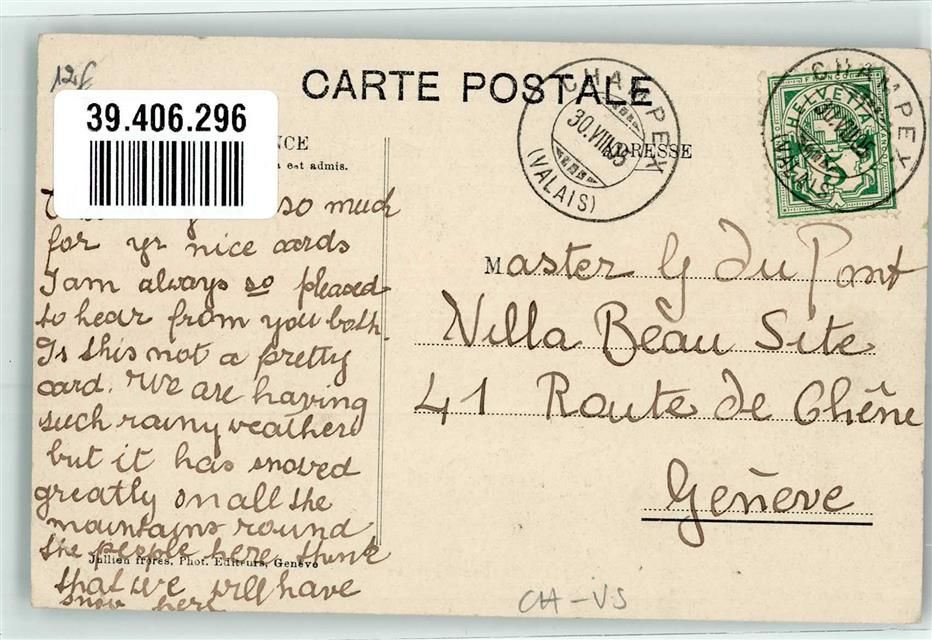 12f
CARTE POSTALE
39.406.296
NCE
est admis.
ADRESSE
CHAMPEX
30.VIII.05
(VALAIS)
FRANCO
HELVETIA
5
CHAMPEX
30.VIII.05
(VALAIS)
so much
for yr nice cards
I am always so pleased
to hear from you both.
Is this not a pretty
card. We are having
such rainy weather
but it has snowed
greatly on all the
mountains round
the people here think
that we will have
snow here
Jullien frères, Phot. Editeurs, Genève
Master G du Pont
Villa Beau Site
41 Route de Chêne
Genève
CH-VS